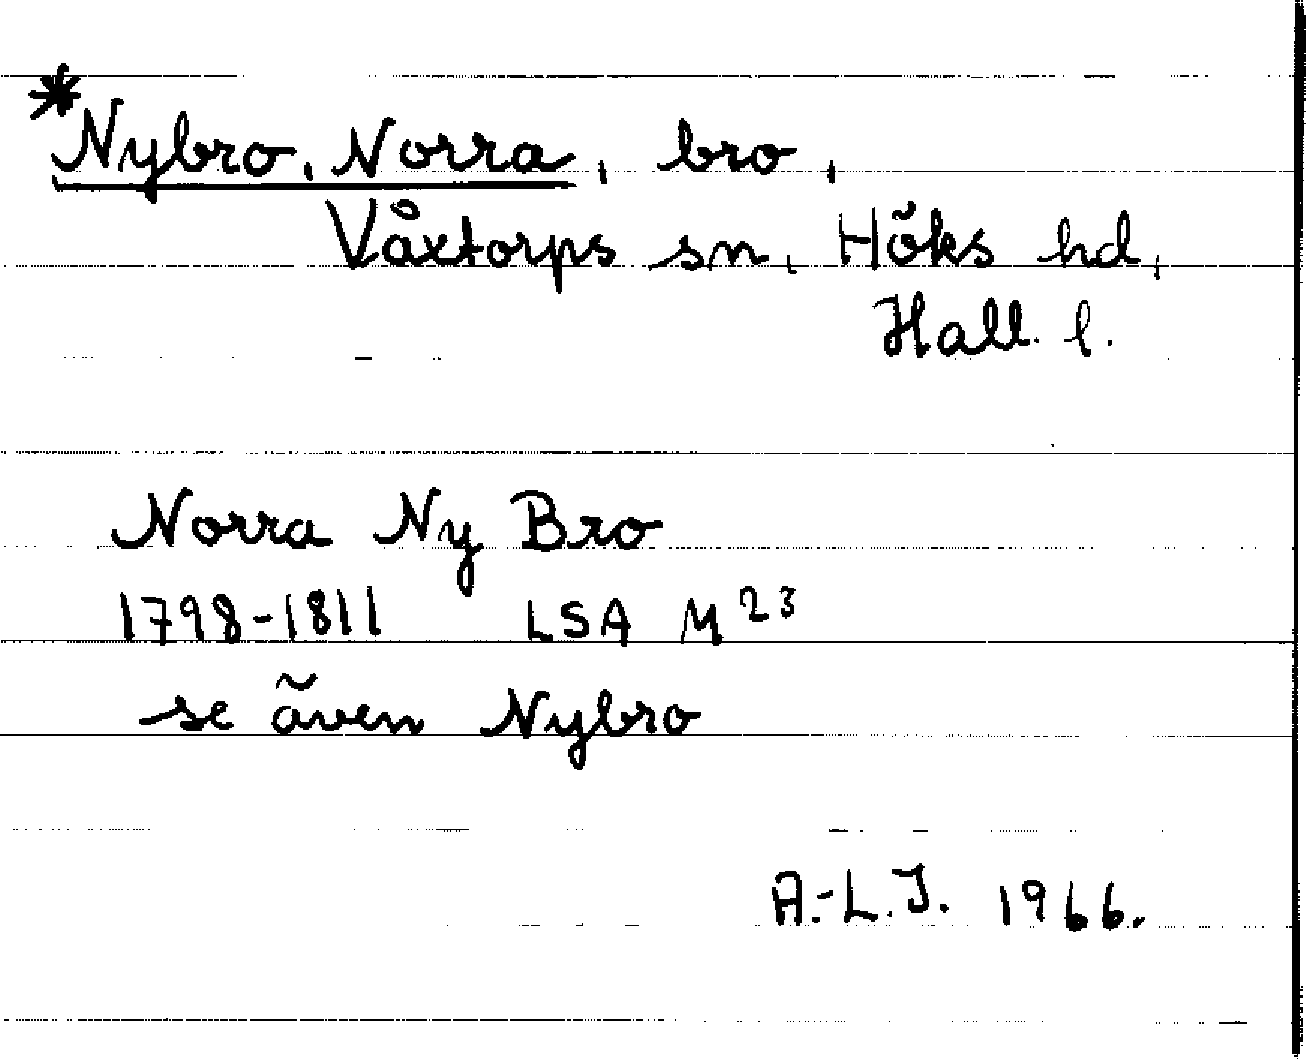 *Nybro, Norra, bro,
Våxtorps sn, Höks hd,
Hall. l.
Norra Ny Bro
1798-1811 LSA M 23
se även Nybro
A.-L.J. 1966.